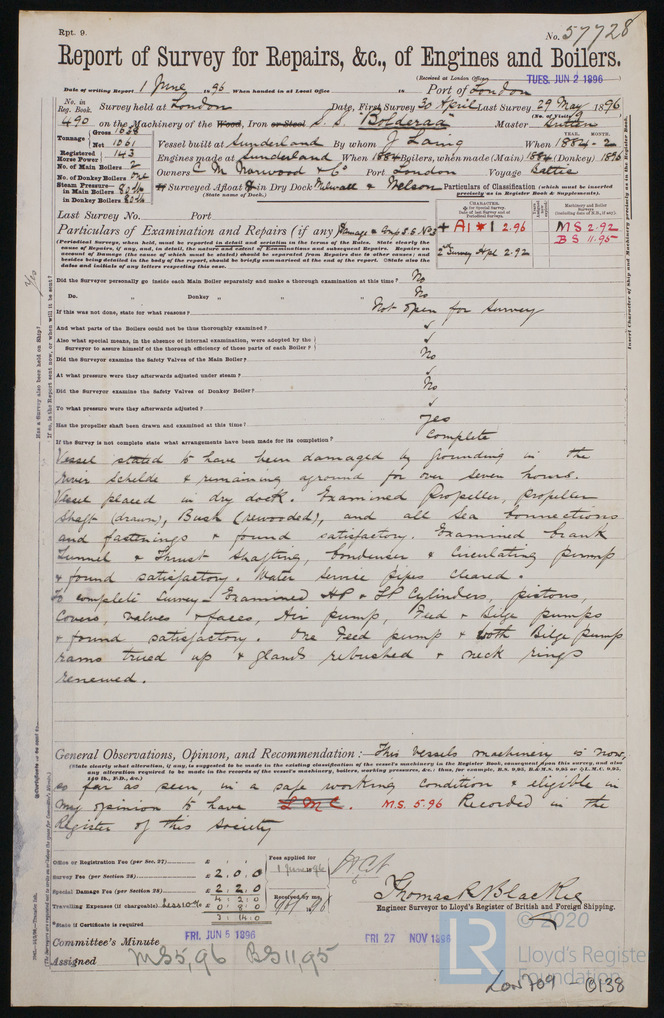 Rpt. 9.
No. 57728
Report of Survey for Repairs, &c., of Engines and Boilers.
(Received at London Office TUES. JUN 2 1896 )
Date of writing Report 1 June 1896 When handed in at Local Office 18 Port of London
No. in Reg. Book. Survey held at London Date, First Survey 30 April Last Survey 29 May 1896
(No. of Visits 9)
490 on the Machinery of the Wood, Iron or Steel S. S. "Bolderaa" Master Sutton
Tonnage Gross 1638
Net 1061
Registered Horse Power 143
No. of Main Boilers 2
No. of Donkey Boilers one
Steam Pressure in Main Boilers 80 lb
in Donkey Boilers 80 lb
YEAR. MONTH.
Vessel built at Sunderland By whom J Laing When 1884-2
Engines made at Sunderland When 1884 Boilers, when made (Main) 1884 (Donkey) 1896
Owners C M Norwood & Co Port London Voyage Baltic
If Surveyed Afloat or in Dry Dock Millwall & Nelson
(State name of Dock.)
Particulars of Classification (which must be inserted precisely as in Register Book & Supplements).
Last Survey No. Port
Particulars of Examination and Repairs (if any) Damage & Comp S.S. No 3
CHARACTER.
Machinery and Boiler Surveys
+ A1 * 1 2.96
MS 2.92
BS 11.95
2nd Survey Apl 2.92
(Periodical Surveys, when held, must be reported in detail and seriatim in the terms of the Rules. State clearly the cause of Repairs, if any, and, in detail, the nature and extent of Examinations and subsequent Repairs. Repairs on account of Damage (the cause of which must be stated) should be separated from Repairs due to other causes; and besides being detailed in the body of the report, should be briefly summarised at the end of the report. State also the dates and initials of any letters respecting this case.
Did the Surveyor personally go inside each Main Boiler separately and make a thorough examination at this time? No
Do. " Donkey " " " No
If this was not done, state for what reasons? Not open for survey
And what parts of the Boilers could not be thus thoroughly examined?
Also what special means, in the absence of internal examination, were adopted by the Surveyor to assure himself of the thorough efficiency of those parts of each Boiler?
Did the Surveyor examine the Safety Valves of the Main Boiler? No
At what pressure were they afterwards adjusted under steam?
Did the Surveyor examine the Safety Valves of Donkey Boiler? No
To what pressure were they afterwards adjusted?
Has the propeller shaft been drawn and examined at this time? Yes
If the Survey is not complete state what arrangements have been made for its completion? Complete
Vessel stated to have been damaged by grounding in the
River Schelde & remaining aground for over seven hours.
Vessel placed in dry dock. Examined Propeller, Propeller
Shaft (drawn), Bush (rewooded), and all Sea Connections
and fastenings & found satisfactory. Examined Crank
Tunnel & Thrust Shafting, Condenser & Circulating pump
& found satisfactory. Water Service pipes cleared.
To complete Survey – Examined HP & LP Cylinders, pistons,
Covers, valves & faces, Air pump, Feed & Bilge pumps
& found satisfactory. One Feed pump & both Bilge pump
rams trued up & glands rebushed & neck rings
renewed.
General Observations, Opinion, and Recommendation :— This vessels machinery is now,
(State clearly what alteration, if any, is suggested to be made in the existing classification of the vessel's machinery in the Register Book, consequent upon this survey, and also any alteration required to be made in the records of the vessel's machinery, boilers, working pressures, &c.; thus, for example, B.S. 9,95, B.&M.S. 9,95 or L.M.C. 9,95, 140 lb., F.D., &c.)
so far as seen, in a safe working condition & eligible in
my opinion to have L.M.C. M.S. 5.96 Recorded in the
Register of this Society
Office or Registration Fee (per Sec. 27) £ : :
Survey Fee (per Section 28) £ 2 : 0 : 0
Special Damage Fee (per Section 28) £ 2 : 2 : 0
4 : 2 : 0
Travelling Expenses (if chargeable) Less 10% £ 0 : 8 : 0
3 : 14 : 0
*State if Certificate is required
Fees applied for
1 June 1896
Received by me,
Thomas R Blackie
Engineer Surveyor to Lloyd's Register of British and Foreign Shipping.
Committee's Minute FRI. JUN 5 1896 FRI 27 NOV 1896
Assigned MS 5,96 BS 11,95
© 2020
LR Lloyd's Register Foundation
LON 709 - 0138